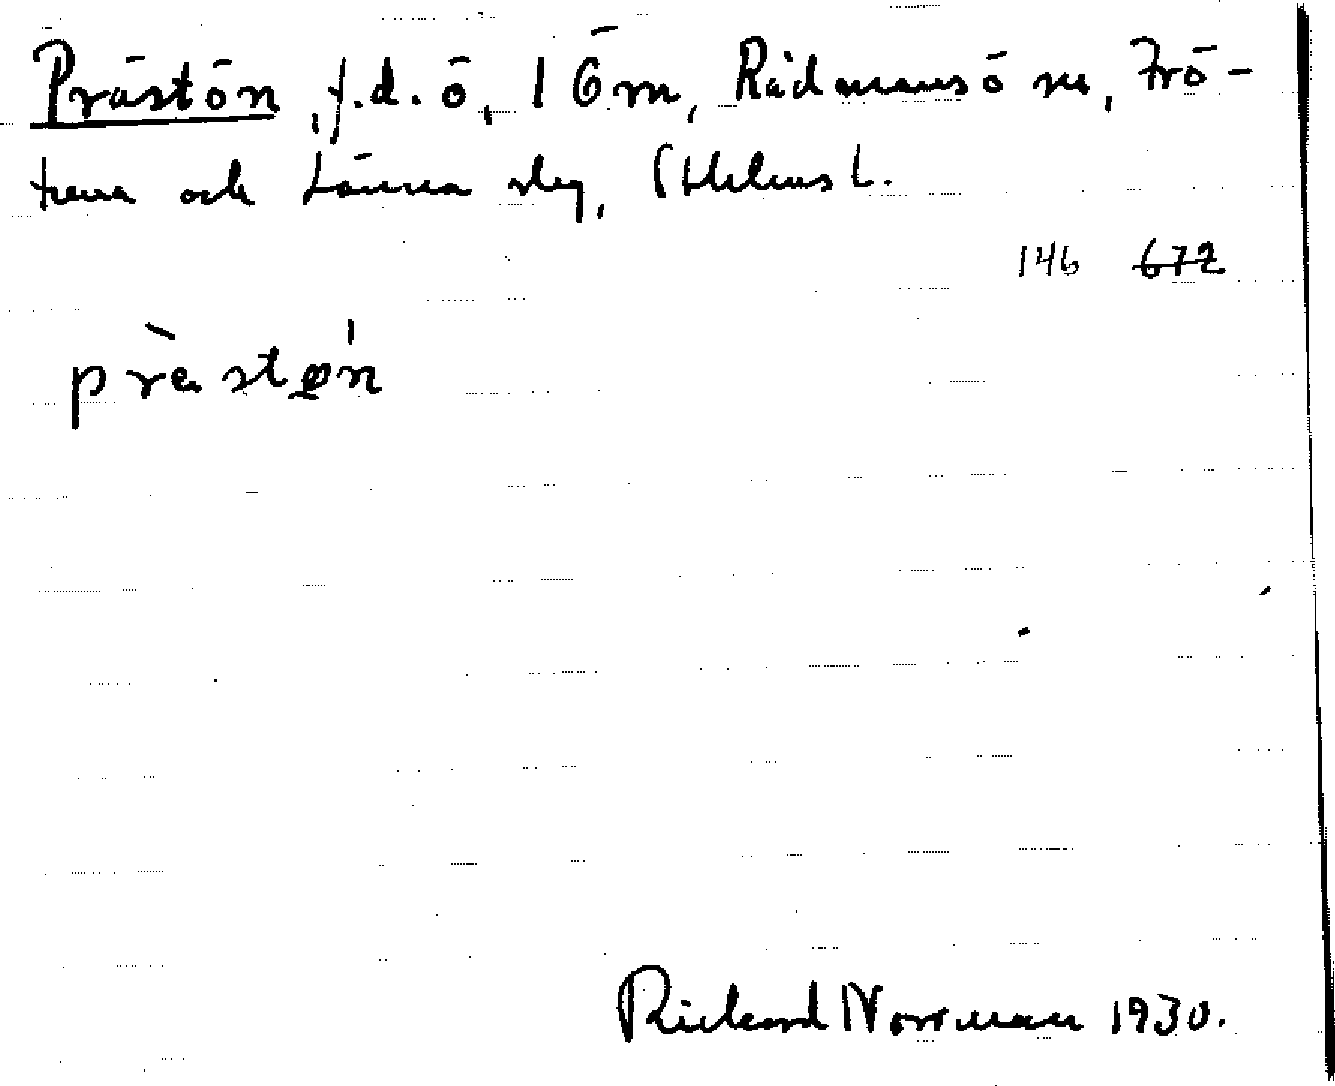 Prästön, f.d. ö, 1 Ö m, Rådmansö sn, Frö-
tuna och Länna slg, Sthlms l.
146 672
prästø̣n
Rickard Norrman 1930.